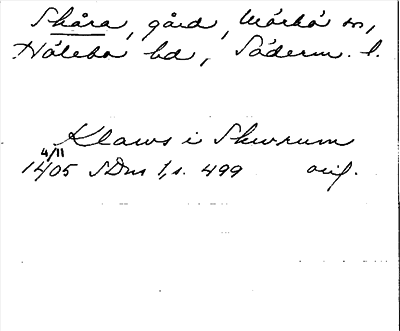 Skåra, gård, Mörkö sn,
Hölebo hd, Söderm. l.
Klaws i Skurum
4/11
1405 SDns 1, s. 499 orig.